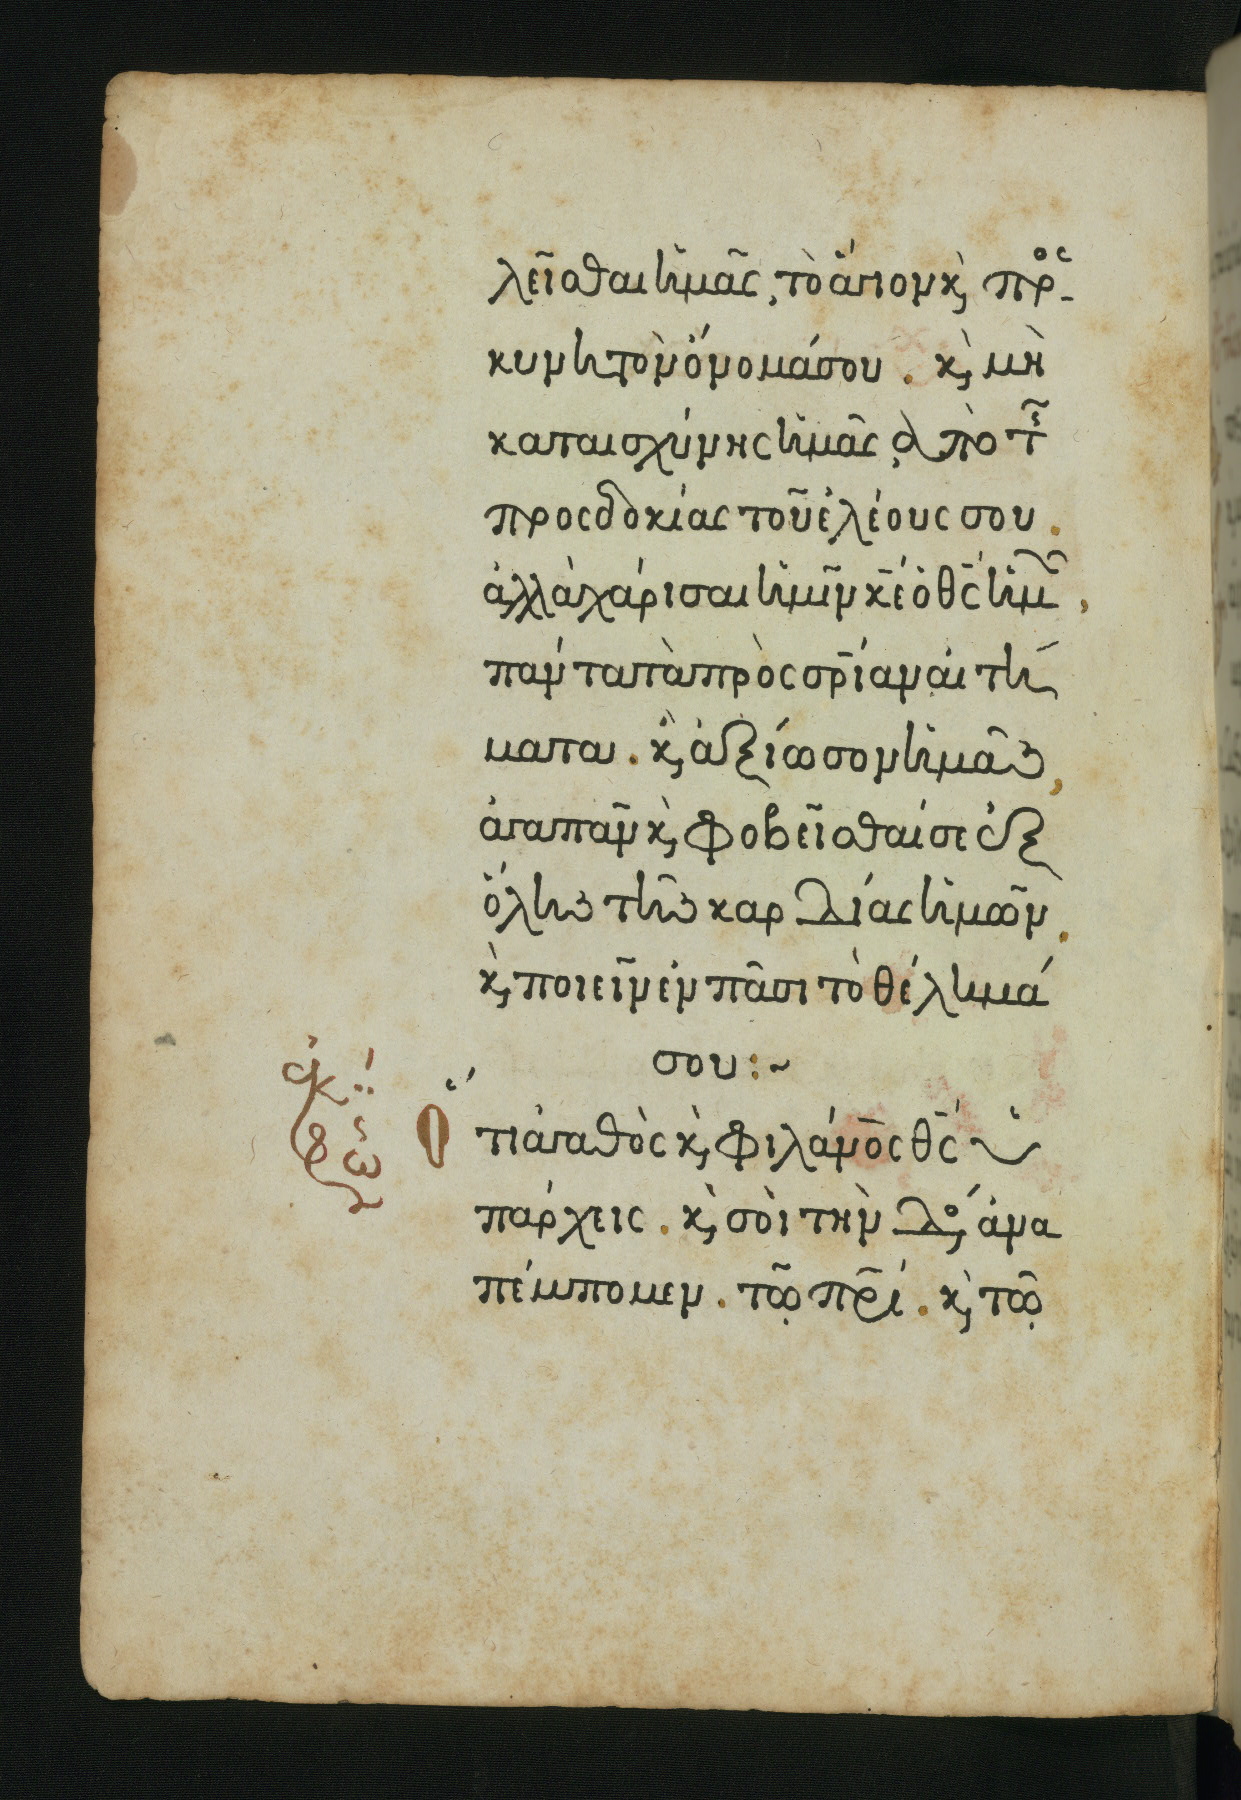 λεῖσθαι ἡμᾶς, τὸ ἅγιον κ̀ προσ-
κυνητὸν ὄνομά σου. κ̀ μὴ
καταισχύνης ἡμᾶς ἀπὸ τῆς
προσδοκίας τοῦ ἐλέους σου.
ἀλλὰ χάρισαι ἡμῖν κ̅ε̅ ὁ θ̅ς̅ ἡμῶν,
πάντα τὰ πρὸς σ̅ρ̅ίαν αἰτή
ματα. κ̀ ἀξίωσον ἡμᾶς,
ἀγαπᾶν κ̀ φοβεῖσθαί σε ἐξ
ὅλης τῆς καρδίας ἡμῶν.
κ̀ ποιεῖν ἐν πᾶσι τὸ θέλημά
σου:~
ἐκφώ
Ὅτι ἀγαθὸς κ̀ φιλάν̅ο̅ς θ̅ς̅ ὑ
πάρχεις. κ̀ σοὶ τὴν δόξαν ἀνα
πέμπομεν. τῶ π̅ρ̅ί. κ̀ τῶ